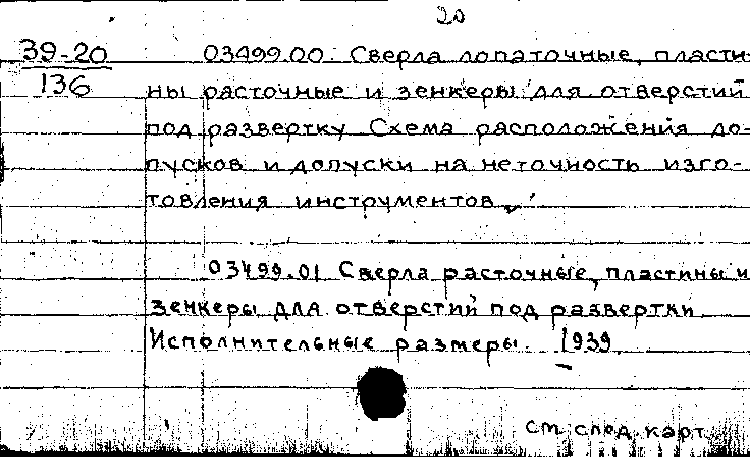 20
39-20
136
03499.00. Сверла лопаточные, пласти-
ны расточные и зенкеры для отверстий
под развертку Схема расположения до-
пусков и допуски на неточность изго-
товления инструментов.
03499.01 Сверла расточные, пластины и
зенкеры для отверстий под развертки.
Исполнительные размеры. 1939.
См след. карт.